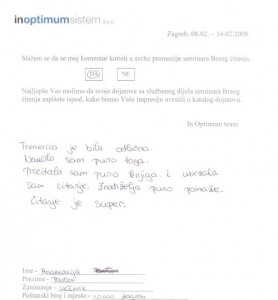 inoptimumsistem d.o.o.
Zagreb, 08.02. – 14.02.2008.
Slažem se da se moj komentar koristi u svrhu promocije seminara Brzog čitanja.
DA NE
Najljepše Vas molimo da svoje dojmove sa službenog dijela seminara Brzog
čitanja zapišete ispod, kako bismo Vaše impresije uvrstili u katalog dojmova.
In Optimum team
Trenerica je bila odlična.
Naučila sam puno toga.
Pročitala sam puno knjiga i ubrzala
sam čitanje. puno pomaže.
Čitanje je super.
Ime -
Prezime -
Zanimanje - učenik
Poštanski broj i mjesto - 10000 Zagreb